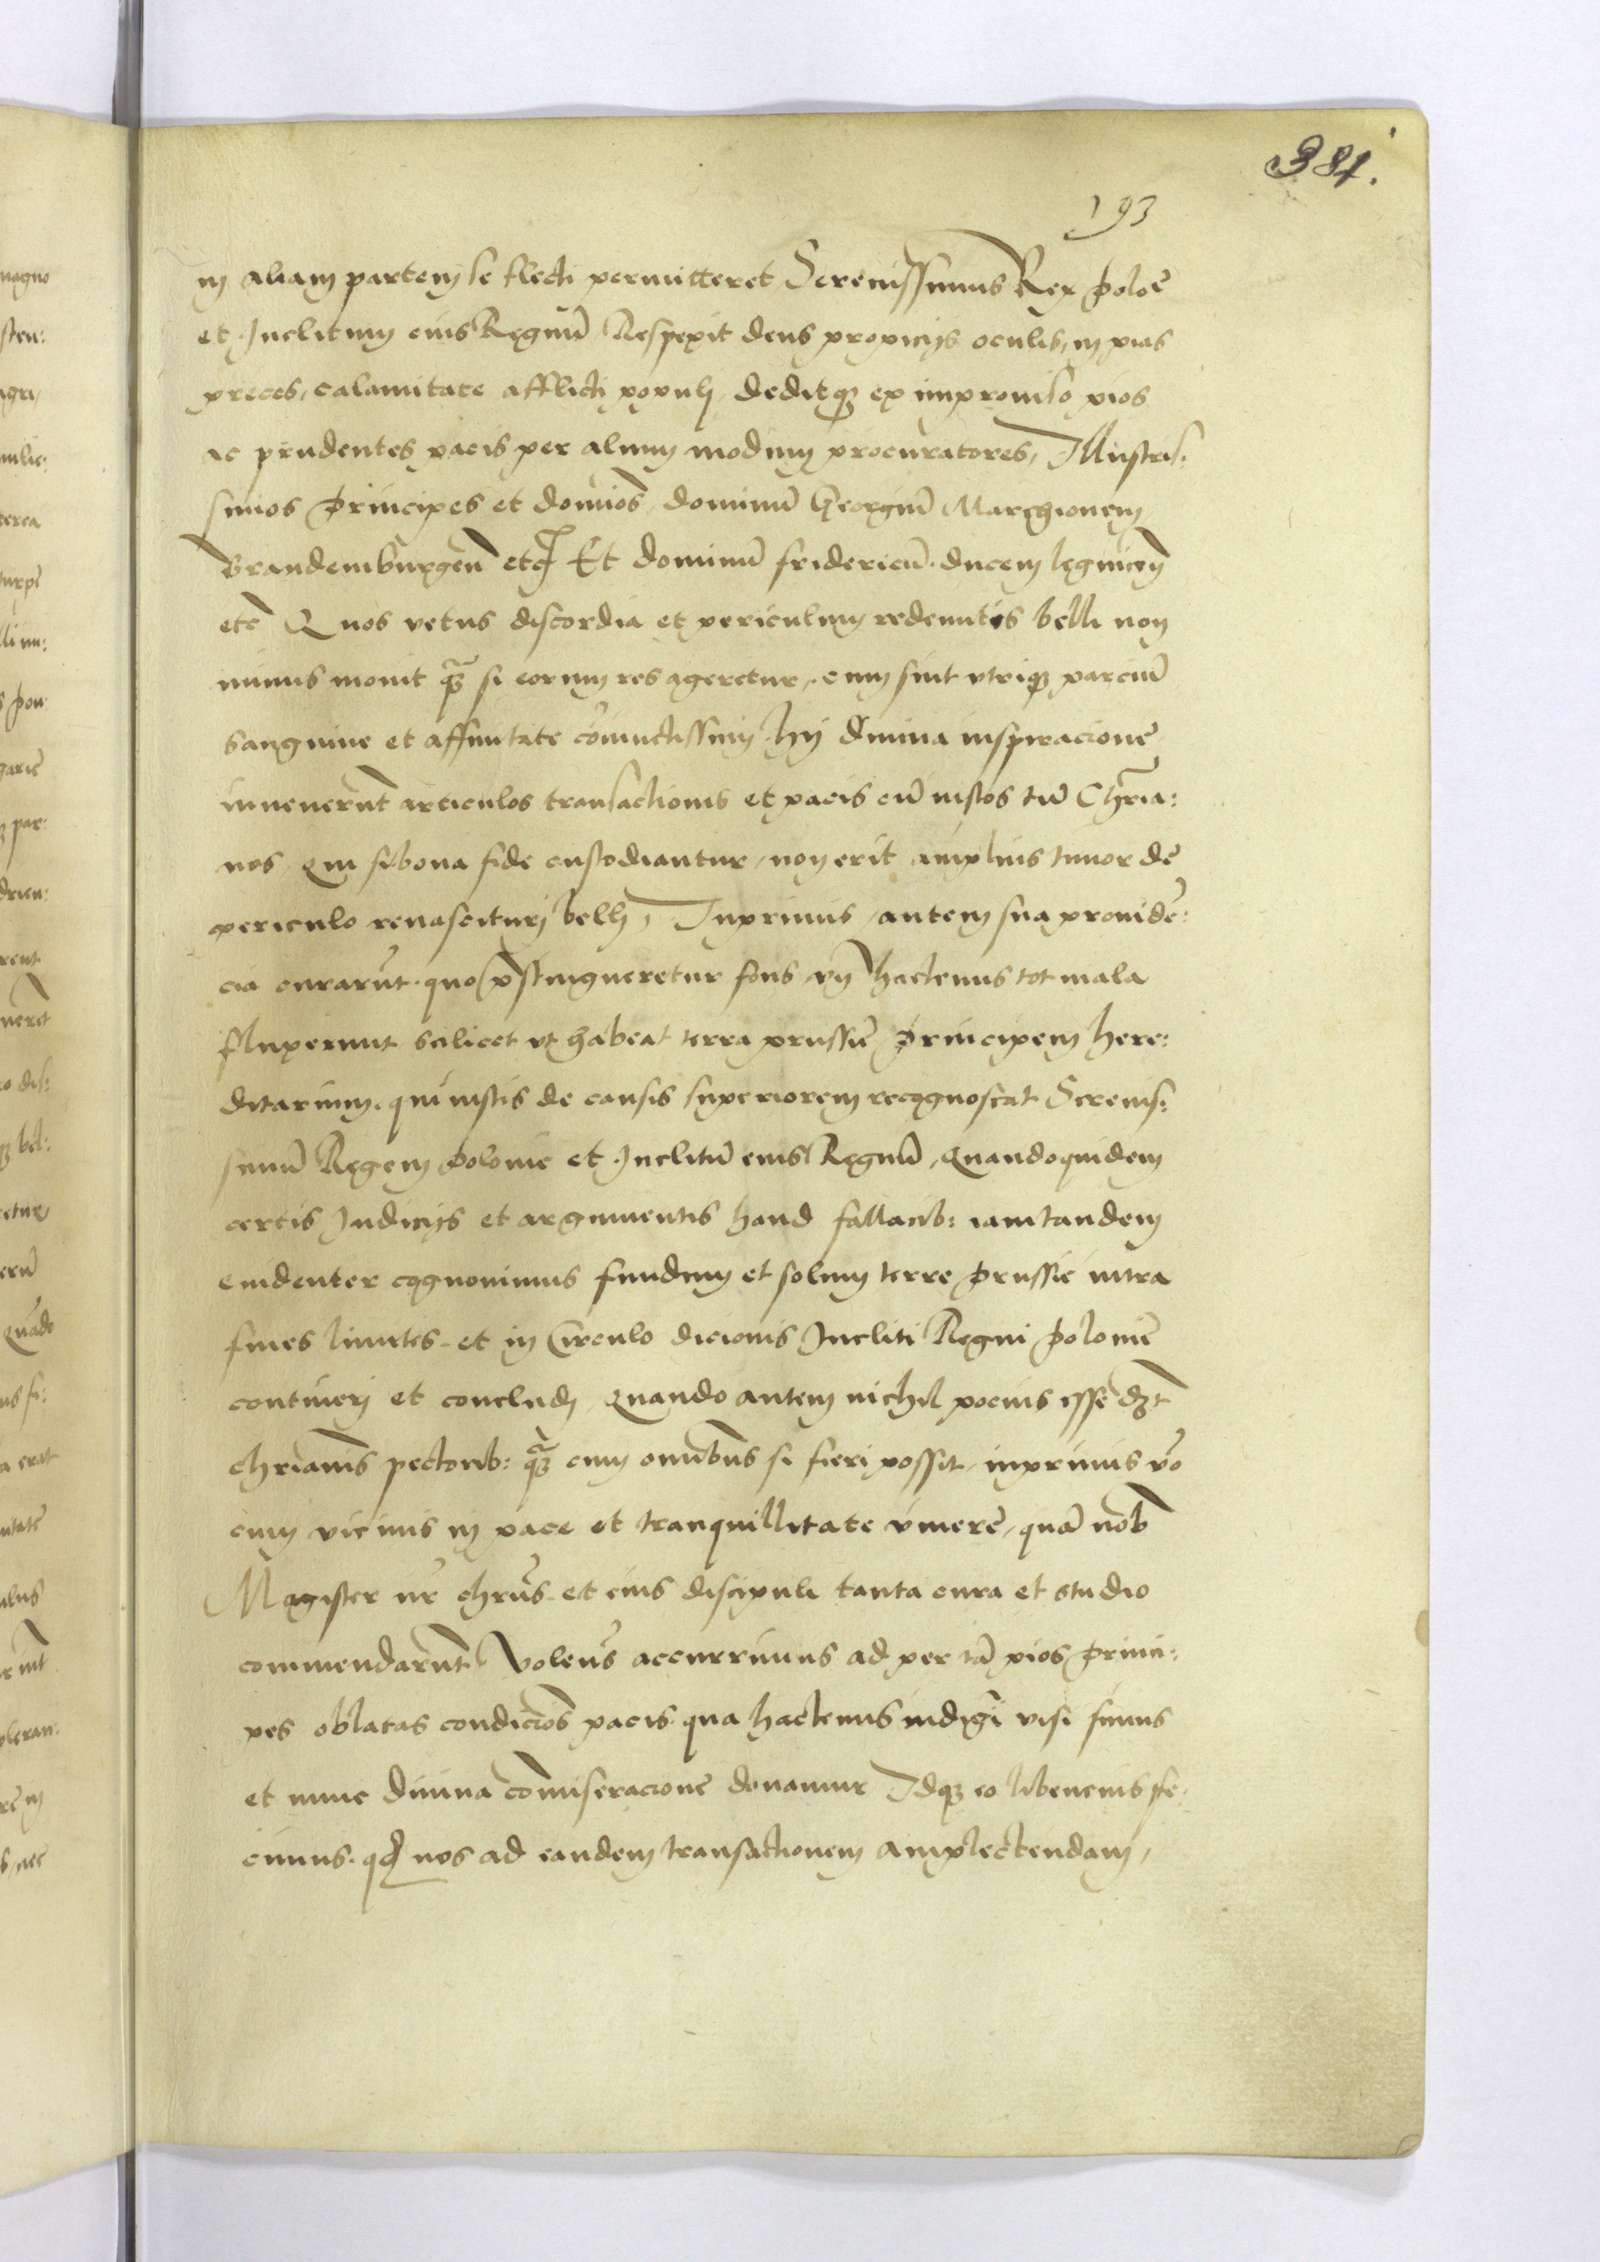 381.
193
in aliam partem se flecti permitteret Serenissimus Rex Poloē
et Inclitum eius Regnū Respexit deus propicijs oculis, in pias
preces, calamitate afflicti populi, deditq̃ ex improuiso pios
ac prudentes pacis per alium modum procuratores, Illustris:
simos Principes et domios, dominū Georgiū Marchionem
Brandemburgeñ etc̃ Et dominū fridericū ducem legniceñ
etc̃ Quos vetus discordia et periculum redeuntis belli non
minus mouit q̃ȝ si eorum res ageretur, cum sint vtriq̃ parciū
sanguine et affinitate cōiunctissimi hij diuina inspiracione
inuenerūt articulos transactionis et pacis cū iustos tū Chr̃ia:
nos, qui si bona fide custodiantur, non erit amplius timor de
periculo renascituri belli, Inprimis, autem sua prouidē:
cia curarūt quo restingueretur fons, vñ hactenus tot mala
fluxerunt scilicet vt habeat terra prussie Principem here:
ditarium, qui iustis de causis superiorem recognoscat Serenis:
simū Regem Polonie et Inclitū eius Regnū, Quandoquidem
certis Indicijs et argumentis haud fallacib: iam tandem
euidenter cognouimus fundum et solum terre Prussie intra
fines limites et in Circulo dicionis Incliti Regni Polonie
contineri et concludi, Quando autem nichil pocius esse dȝt
chr̃ianis pectorib: q̃ȝ cum omībus si fieri possit, inprimis v̄o
cum vicinis in pace et tranquillitate viuere, quā nob̃
Magister nr̃ chrūs et eius discipuli tanta cura et studio
commendarūt Volen̄s accurrimus ad per tā pios Princi:
pes oblatas condiciōs pacis qua hactenus indigni visi sumus
et nunc diuina cōmiseracione donamur Idq̃ eo libencius fe:
cimus, qđ nos ad eandem transactionem amplectendam,